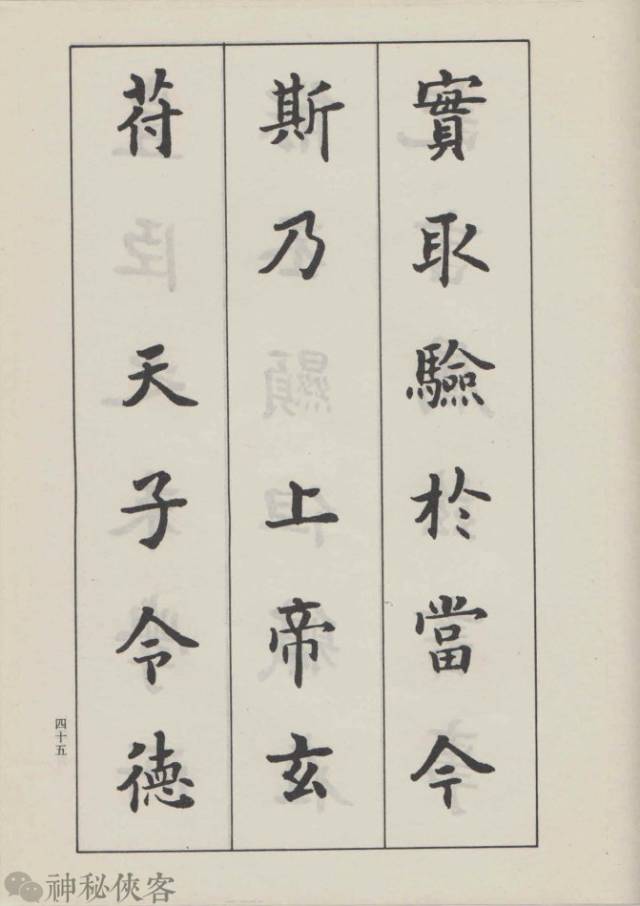 實取驗於當今
斯乃上帝玄
苻天子令德
四十五
神秘俠客